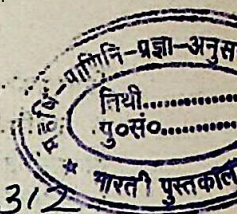 महर्षि-पाणिनि-प्रज्ञा-अनुस
तिथी............
पु०सं०............
* भारती पुस्तकाल
312